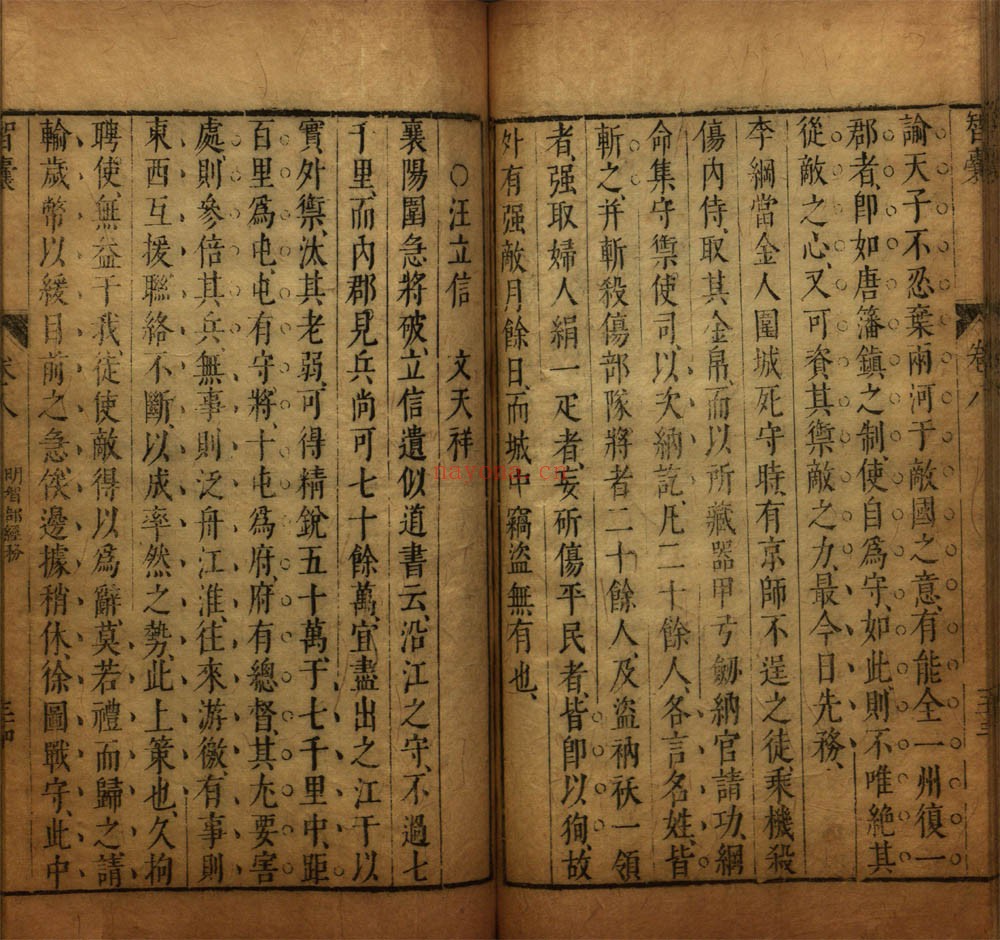 智囊 卷八 三十三
諭天子不忍棄兩河于敵國之意有能全一州復一
郡者卽如唐籓鎮之制使自爲守如此則不唯絶其
從敵之心又可資其禦敵之力最今日先務
李綱當金人圍城死守時有京師不逞之徒乘機殺
傷內侍取其金帛而以所藏器甲弓劒納官請功綱
命集守禦使司以次納訖凡二十餘人各言名姓皆
斬之并斬殺傷部隊將者二十餘人及盜衲袄一領
者强取婦人絹一疋者妄斫傷平民者皆卽以狥故
外有强敵月餘日而城中竊盜無有也
○汪立信 文天祥
襄陽圍急將破立信遺似道書云沿江之守不過七
千里而內郡見兵尚可七十餘萬宜盡出之江干以
實外禦汰其老弱可得精銳五十萬于七千里中距
百里爲屯屯有守將十屯爲府府有總督其尢要害
處則參倍其兵無事則泛舟江淮往來游徼有事則
東西互援聯絡不斷以成率然之勢此上策也久拘
聘使無益于我徒使敵得以爲辭莫若禮而歸之請
輸歲幣以緩目前之急俟邊據稍休徐圖戰守此中
智囊 卷八 明智部經務 三十四
nayona.cn